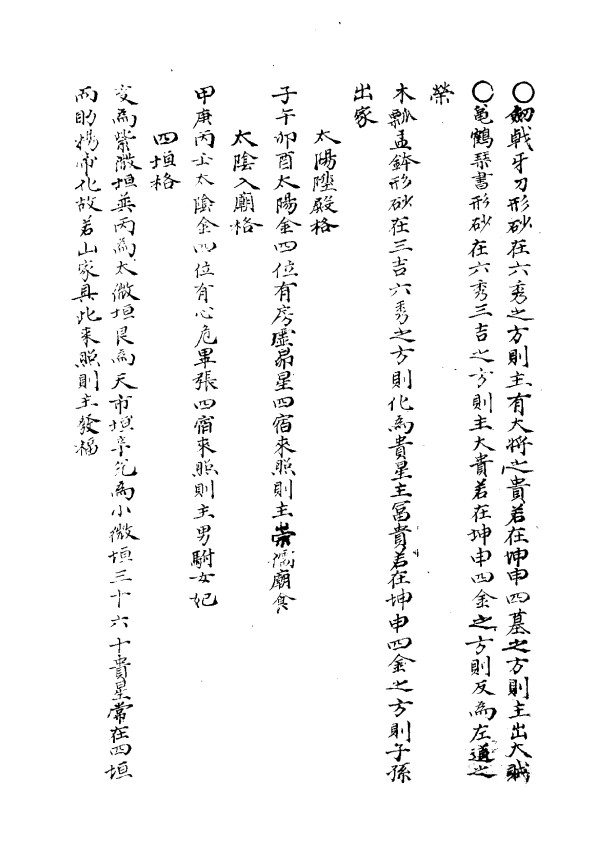 ○劒戟牙刀形砂在六秀之方則主有大將之貴若在坤申四墓之方則主出大賊
○龜鶴琹書形砂在六秀三吉之方則主大貴若在坤申四金之方則反爲左道之
榮
木瓢盂鉢形砂在三吉六秀之方則化爲貴星主冨貴若在坤申四金之方則子孫
出家
太陽陞殿格
子午卯酉太陽金四位有房虛昴星四宿來照則主崇儒廟食
太陰入廟格
甲庚丙壬太陰金四位有心危畢張四宿來照則主男駙女妃
四垣格
亥爲紫微垣巽丙爲太微垣艮爲天市垣辛兌爲小微垣三十六十貴星常在四垣
而助揚帝化故若山家具此來照則主發福